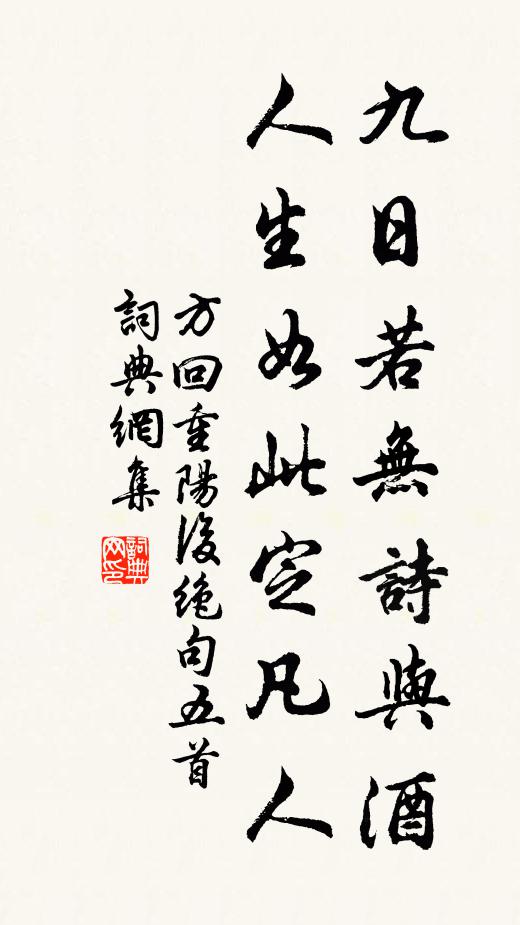 九日若無詩與酒
人生如此定凡人
方回重陽後絶句五首
詞典網集
詞典
网印